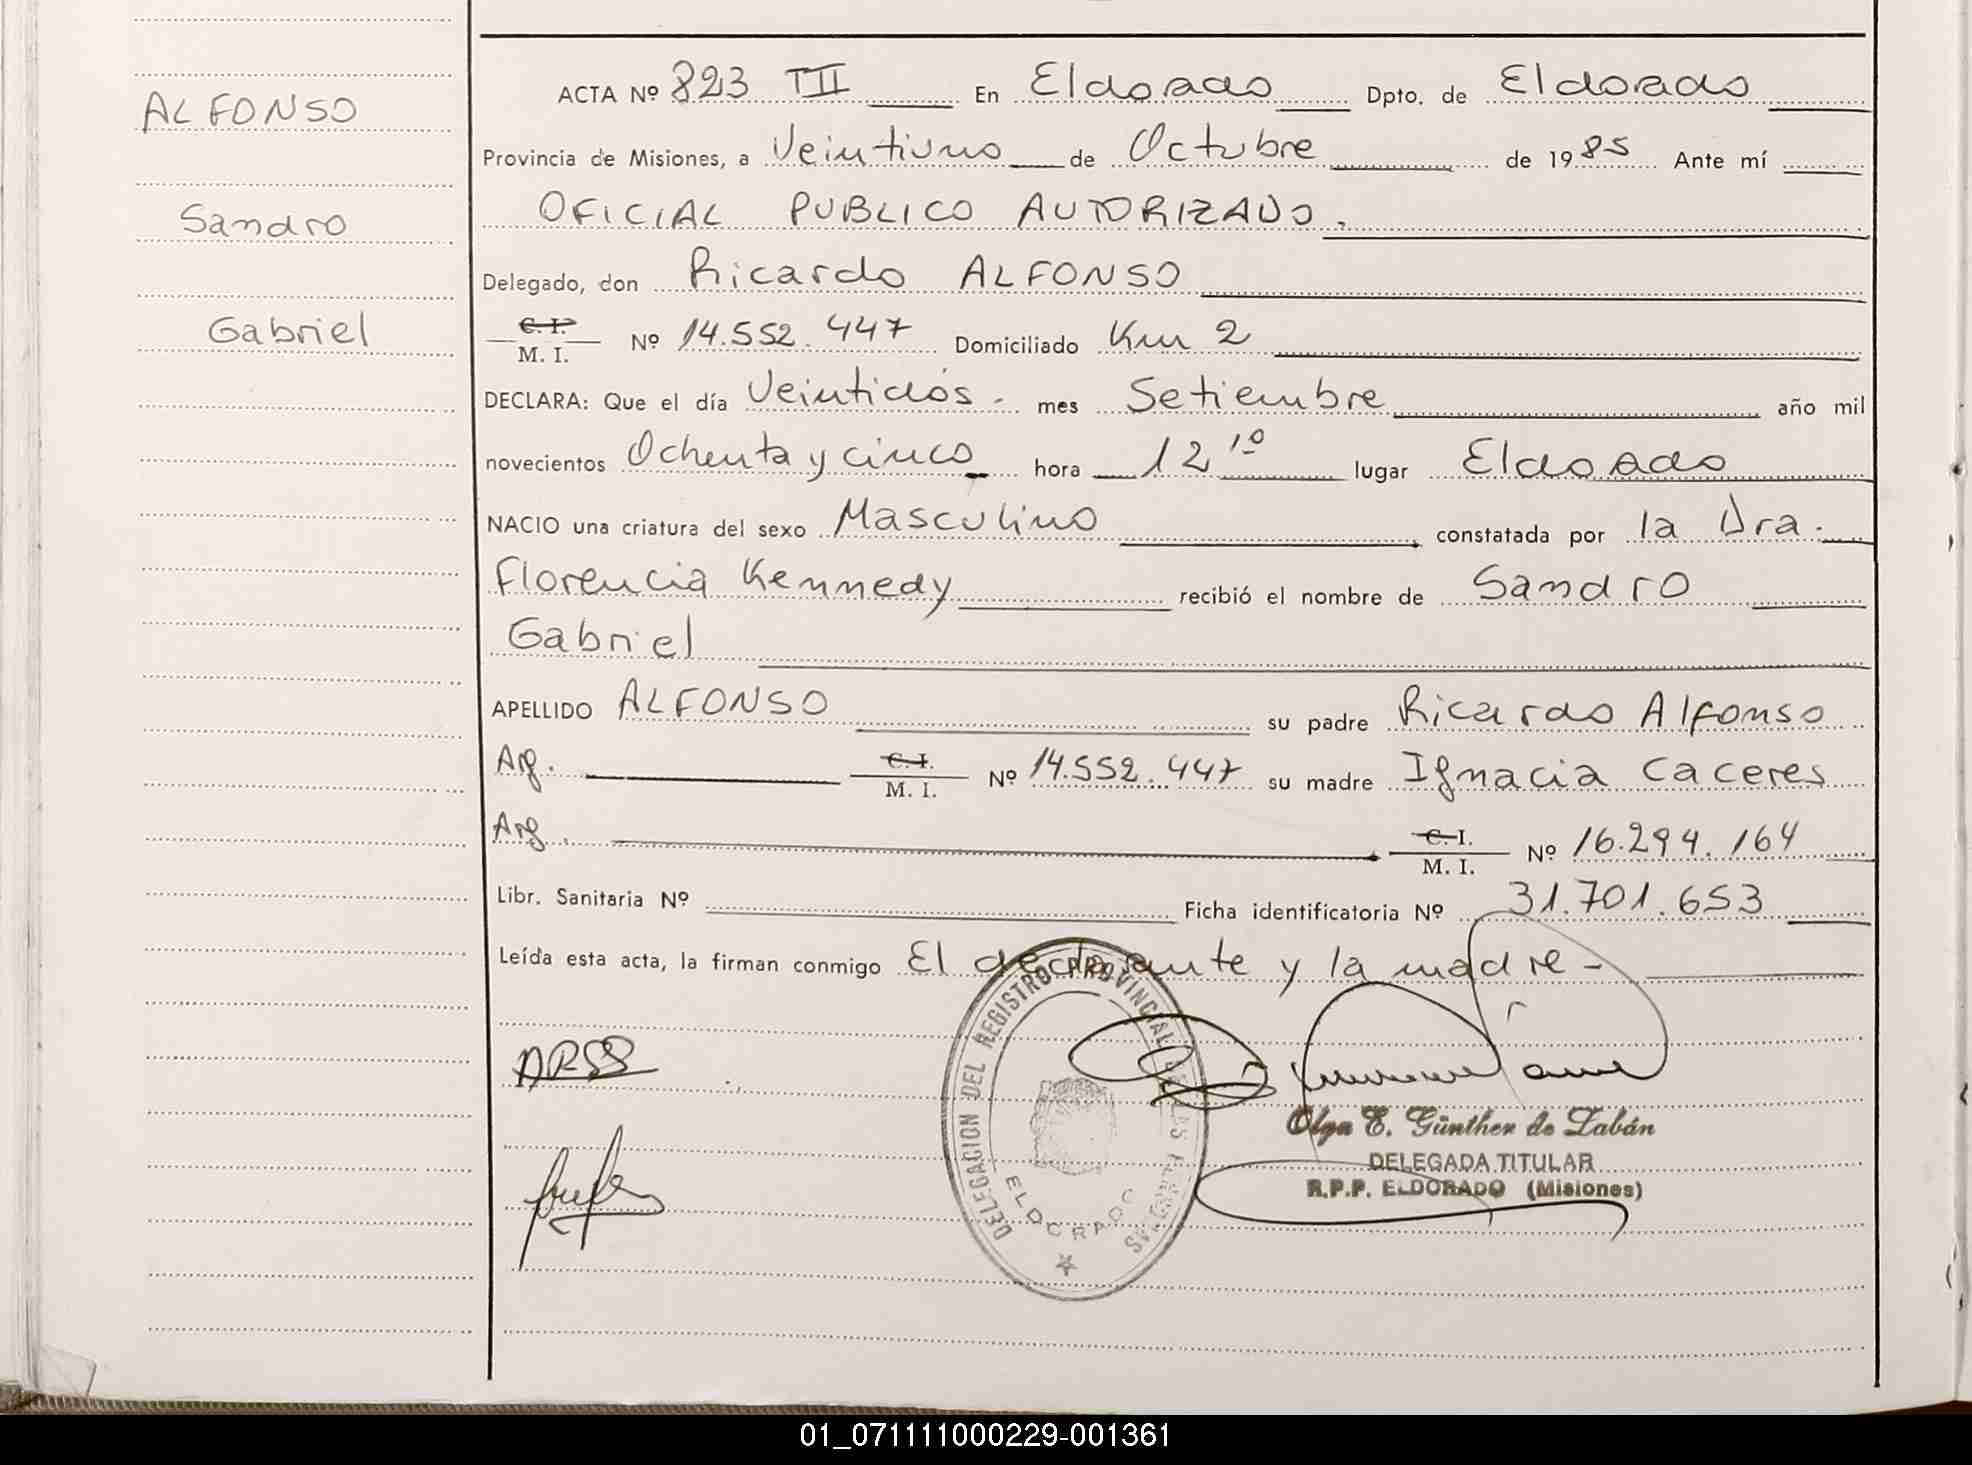 ALFONSO
Sandro
Gabriel
ACTA Nº 823 TII En Eldorado Dpto. de Eldorado
Provincia de Misiones, a Veintiuno de Octubre de 1985 Ante mí
OFICIAL PUBLICO AUTORIZADO.
Delegado, don Ricardo ALFONSO
C. I.
M. I. Nº 14.552.447 Domiciliado Km 2
DECLARA: Que el día Veintidós - mes Setiembre año mil
novecientos Ochenta y cinco hora 12 10 lugar Eldorado
NACIO una criatura del sexo Masculino constatada por la Dra.
Florencia Kennedy recibió el nombre de Sandro
Gabriel
APELLIDO ALFONSO su padre Ricardo Alfonso
Arg. C. I.
M. I. Nº 14.552.447 su madre Ignacia Caceres
Arg. C. I.
M. I. Nº 16.294.164
Libr. Sanitaria Nº Ficha identificatoria Nº 31.701.653
Leída esta acta, la firman conmigo El declarante y la madre -
DELEGACION DEL REGISTRO PROVINCIAL DE LAS PERSONAS
ELDORADO
Olga E. Günther de Zabán
DELEGADA TITULAR
R.P.P. ELDORADO (Misiones)
01_071111000229-001361